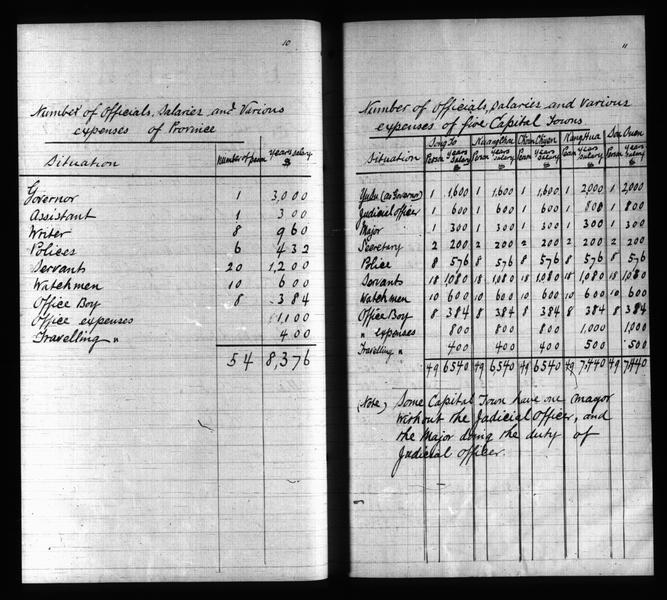 10
Number of Officials, Salaries and Various
expenses of Province
Situation Number of person years salary $
Governor 1 3,000
Assistant 1 300
Writer 8 960
Polices 6 432
Servants 20 1,200
Watchmen 10 600
Office Boy 8 384
Office expenses 1,100
Travelling " 400
54 8,376
11
Number of Officials, Salaries and Various
expenses of five Capital Towns
Song To Kwang Chu Chun Chuen Kang Hua Quen
Situation Person years salary $ Person years salary $ Person years salary $ Person years salary $ Person years salary $
Yusu (as Governor) 1 1,600 1 1,600 1 1,600 1 2,000 1 2,000
Judicial officer 1 600 1 600 1 600 1 800 1 800
Major 1 300 1 300 1 300 1 300 1 300
Secretary 2 200 2 200 2 200 2 200 2 200
Police 8 576 8 576 8 576 8 576 8 576
Servants 18 1,080 18 1,080 18 1,080 18 1,080 18 1,080
Watchmen 10 600 10 600 10 600 10 600 10 600
Office Boy 8 384 8 384 8 384 8 384 8 384
" expenses 800 800 800 1,000 1,000
Travelling " 400 400 400 500 500
49 6540 49 6540 49 6540 49 7,440 49 7,440
(Note) Some Capital Town have one mayor
without the Judicial Officer, and
the Major doing the duty of
Judicial Officer.